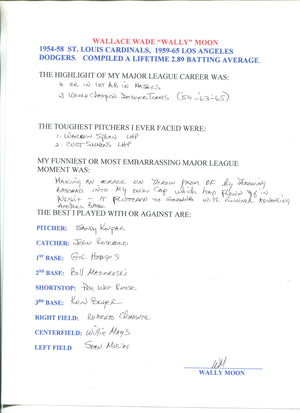 WALLACE WADE "WALLY" MOON
1954-58 ST. LOUIS CARDINALS, 1959-65 LOS ANGELES
DODGERS. COMPILED A LIFETIME 2.89 BATTING AVERAGE.
THE HIGHLIGHT OF MY MAJOR LEAGUE CAREER WAS:
HR IN 1ST AB IN MAJORS
3 WORLD CHAMPION DODGER TEAMS (59-'63-'65)
THE TOUGHEST PITCHERS I EVER FACED WERE:
1. WARREN SPAHN LHP
2. CURT SIMMONS LHP
MY FUNNIEST OR MOST EMBARRASSING MAJOR LEAGUE
MOMENT WAS:
MAKING AN ERROR ON THROW FROM OF BY THROWING
BASEBALL INTO MY OWN CAP WHICH HAD FLOWN OFF IN
- IT FLUTTERED TO GROUND WITH RUNNER ADVANCING
ANOTHER BASE
THE BEST I PLAYED WITH OR AGAINST ARE:
PITCHER: SANDY KOUFAX
CATCHER: JOHN ROSEBORO
1ST BASE: GIL HODGES
2ND BASE: BILL MAZEROSKI
SHORTSTOP: PEE WEE REESE
3RD BASE: KEN BOYER
RIGHT FIELD: ROBERTO CLEMENTE
CENTERFIELD: WILLIE MAYS
LEFT FIELD STAN MUSIAL
WM
WALLY MOON